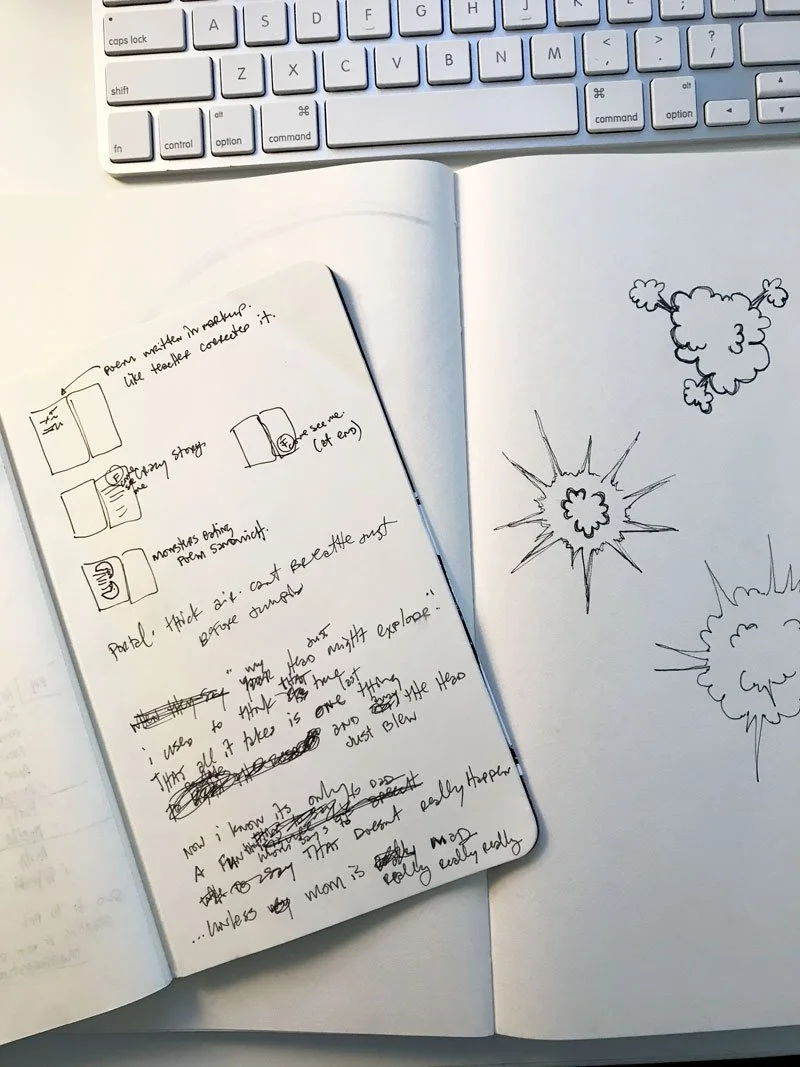 caps lock
A
S
D
F
G
H
J
K
L
;
shift
Z
X
C
V
B
N
M
<
,
>
.
?
/
fn
control
alt
option
⌘
command
⌘
command
alt
option
poem written in markup.
like teacher corrected it.
crazy story.
me
see me.
(at end)
monsters eating
poem sandwich.
portal: thick air. cant breathe just
before jumpin
"my just
your head might explode."
i used to think that
is true
THAT all it takes is one last thing
and the head
just blew
now i know its only
A fun thing
to dad
mom says
to say THAT doesnt really happen
...unless my mom is really mad
really really really